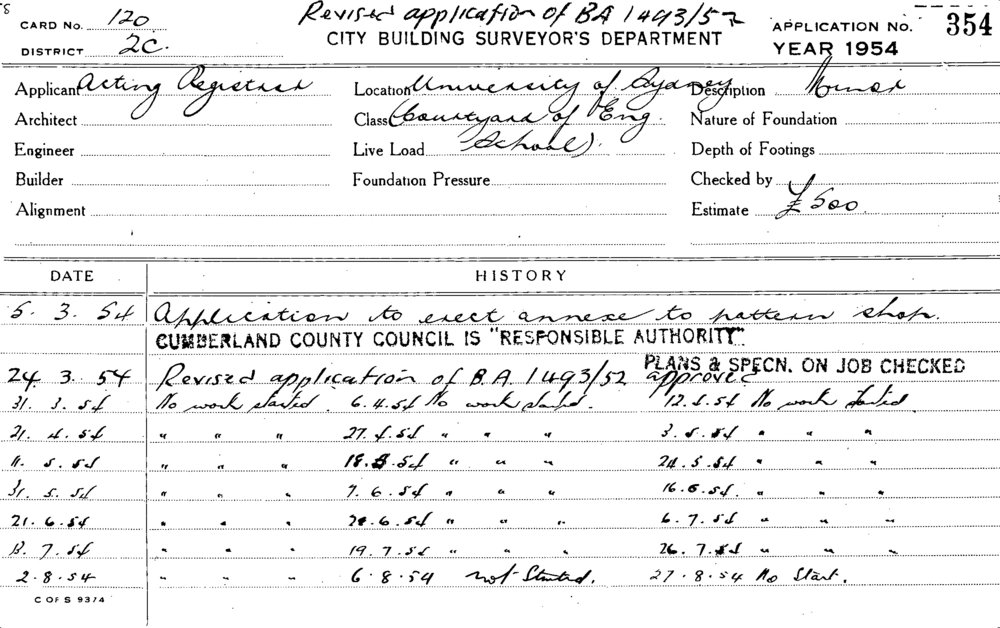 Revised application of BA 1493/52
CARD No. 120 CITY BUILDING SURVEYOR'S DEPARTMENT APPLICATION No. 354
DISTRICT 2C. YEAR 1954
Applicant Acting Registrar Location University of Sydney Description Minor
Architect Class (Courtyard of Eng. Nature of Foundation
Engineer Live Load School). Depth of Footings
Builder Foundation Pressure Checked by
Alignment Estimate £500
DATE HISTORY
5. 3. 54 Application to erect annexe to pattern shop.
CUMBERLAND COUNTY COUNCIL IS "RESPONSIBLE AUTHORITY"
PLANS & SPECN. ON JOB CHECKED
24. 3. 54 Revised application of B.A. 1493/52 approved
31. 3. 54 No work started. 6.4.54 No work started. 12.4.54 No work started.
21. 4. 54 " " " 27.4.54 " " " 3.5.54 " " "
11. 5. 54 " " " 18.5.54 " " " 24.5.54 " " "
31. 5. 54 " " " 7.6.54 " " " 16.6.54. " " "
21. 6. 54 " " " 6.54 " " " 6.7.54 " " "
13. 7. 54 " " " 19.7.54 " " " 26.7.54 " " "
2.8.54 " " " 6.8.54 not Started. 27.8.54 No Start.
C OF S 9374